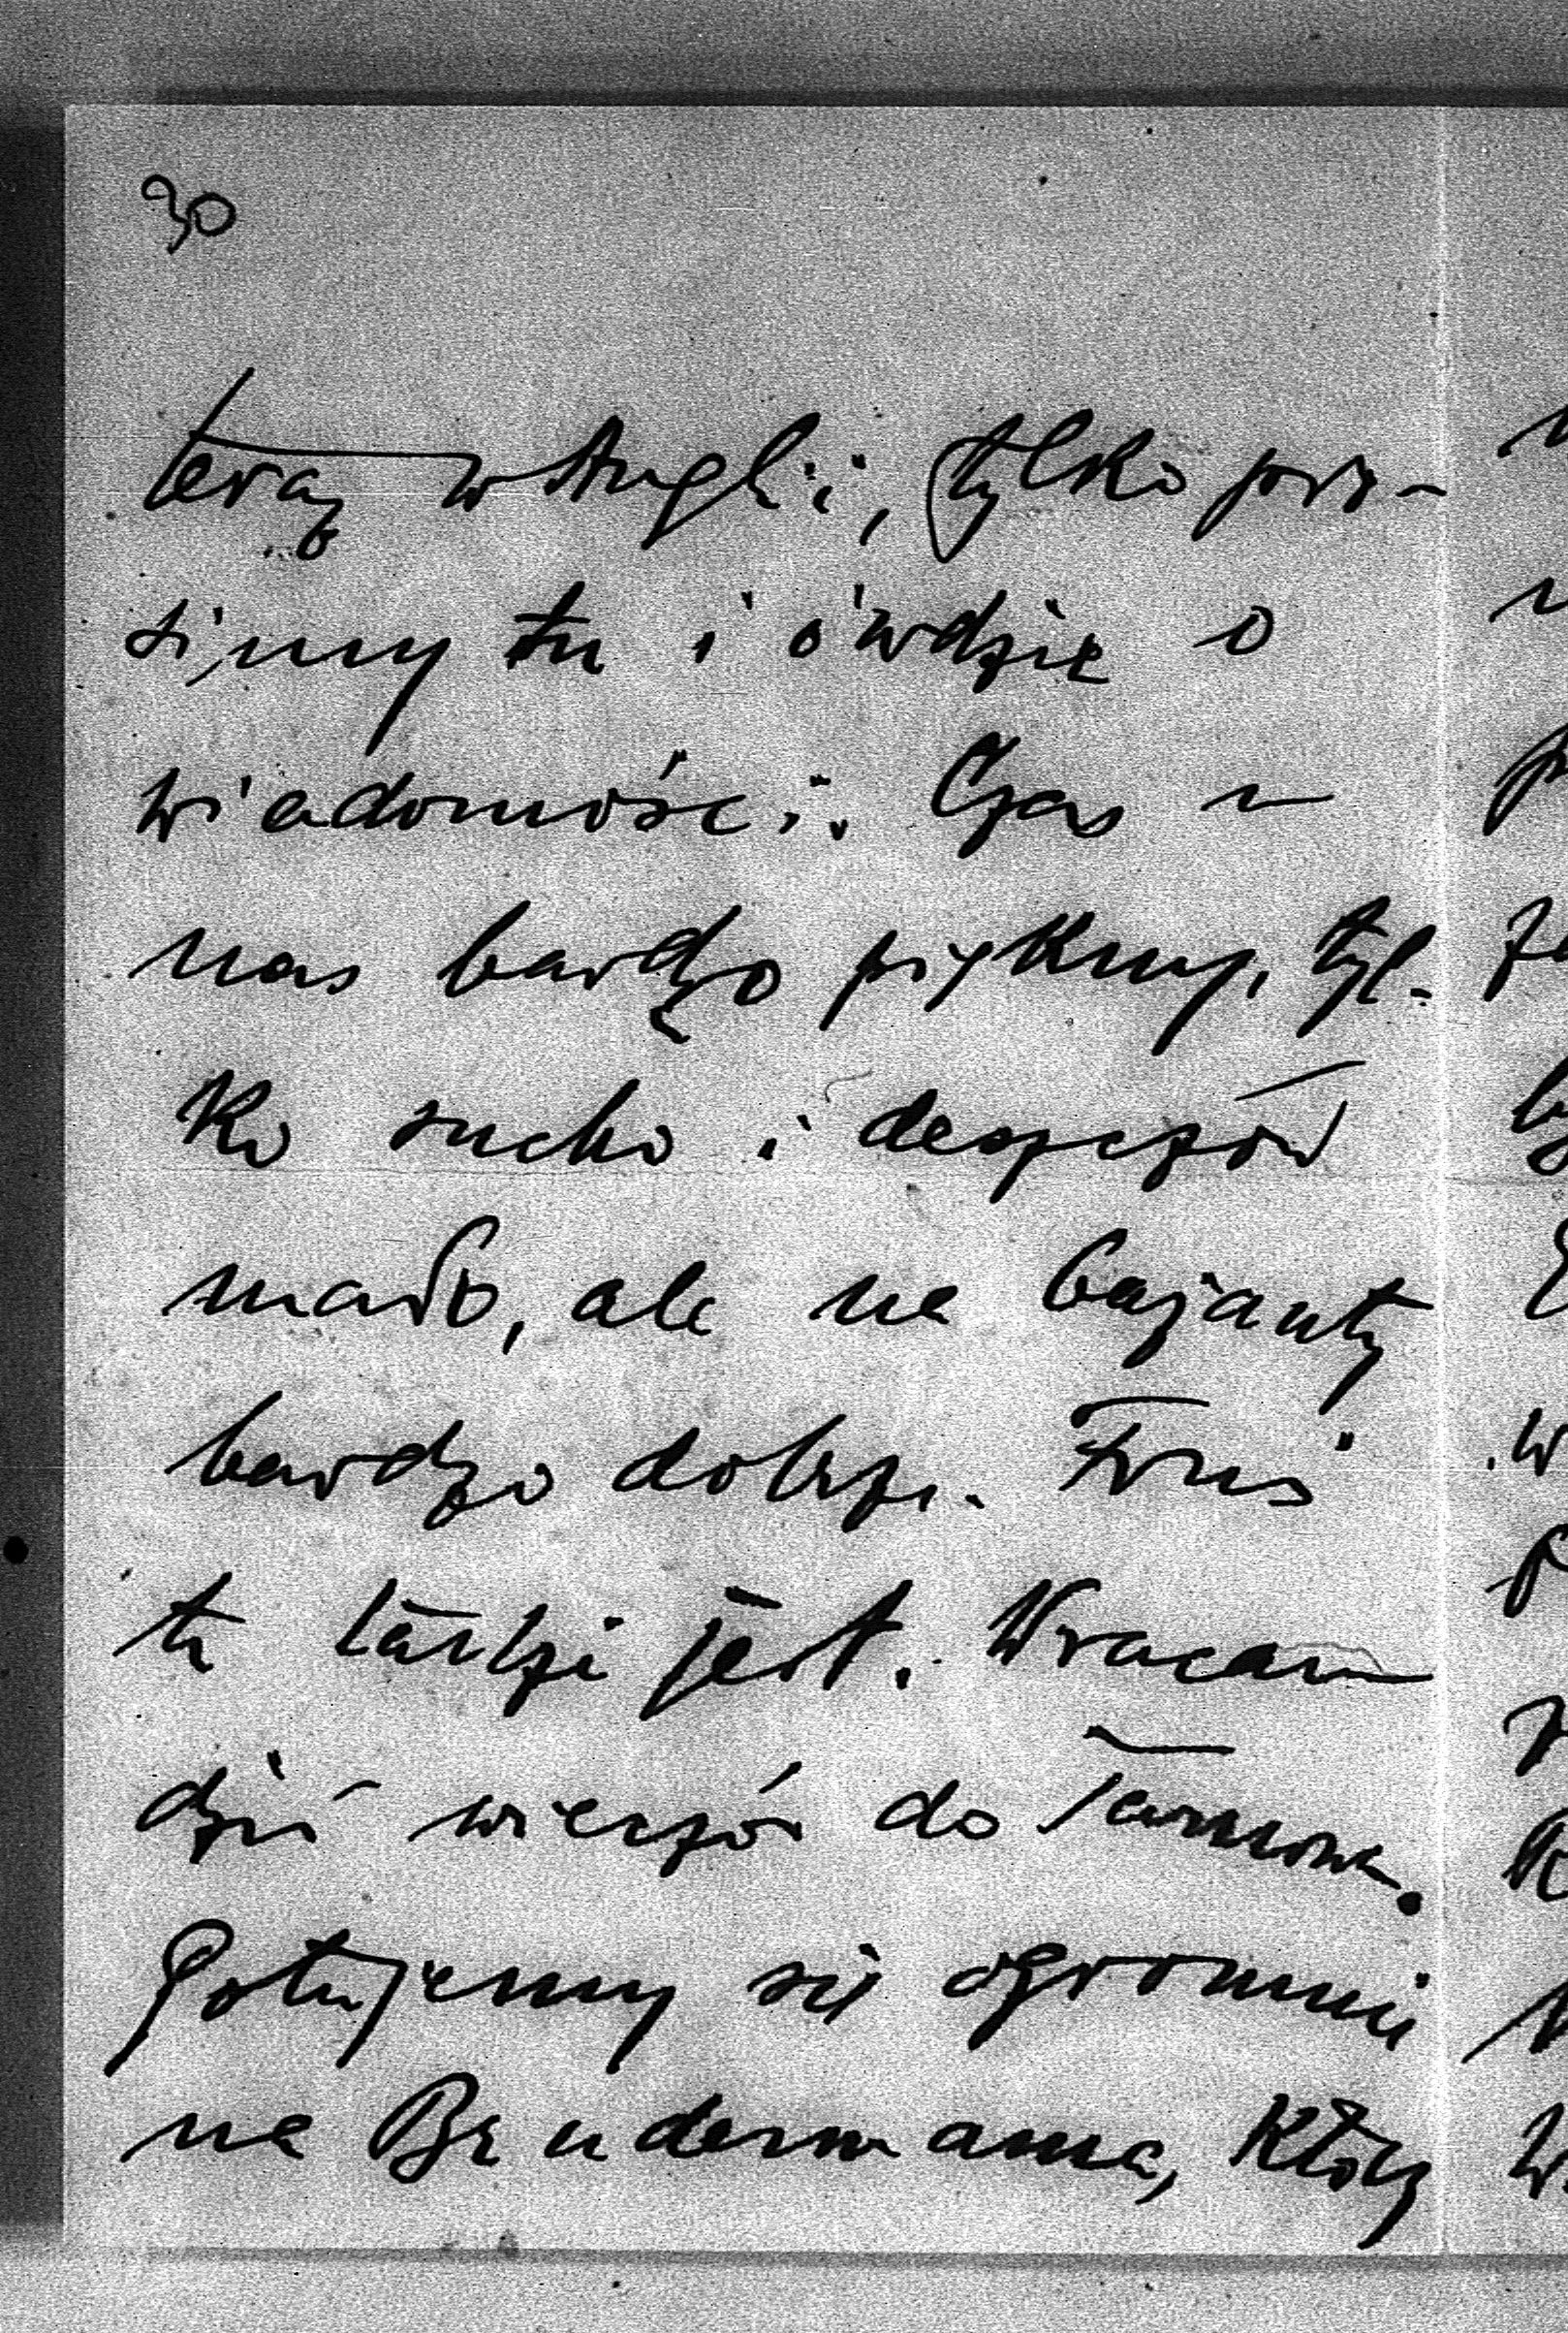 30
teraz w Anglii, tylko pro-
simy tu i ówdzie o
wiadomości. Czas u
nas bardzo piękny, tyl-
ko sucho i deszczów
mało, ale na bażanty
bardzo dobrze.
tu także jest. Wracam
dziś wieczór do Tarnowa.
Gotujemy się ogromnie
na Brudermana, który